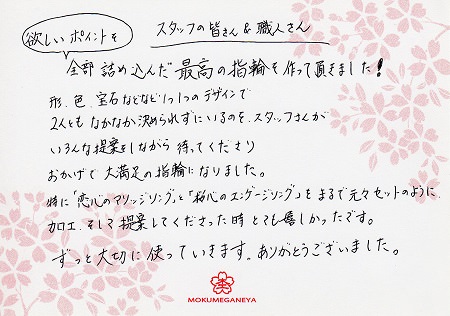 スタッフの皆さん & 職人さん
欲しいポイントを
全部詰め込んだ最高の指輪を作って頂きました!
形、色、宝石などなど1つ1つのデザインで
2人ともなかなか決められずにいるのを、スタッフさんが
いろんな提案をしながら、待ってくださり
おかげで大満足の指輪になりました。
特に「恋心のマリッジリング」と「桜心のエンゲージリング」をまるで元々セットのように、
加工、そして提案してくださった時とても嬉しかったです。
ずっと大切に使っていきます。ありがとうございました。
MOKUMEGANEYA